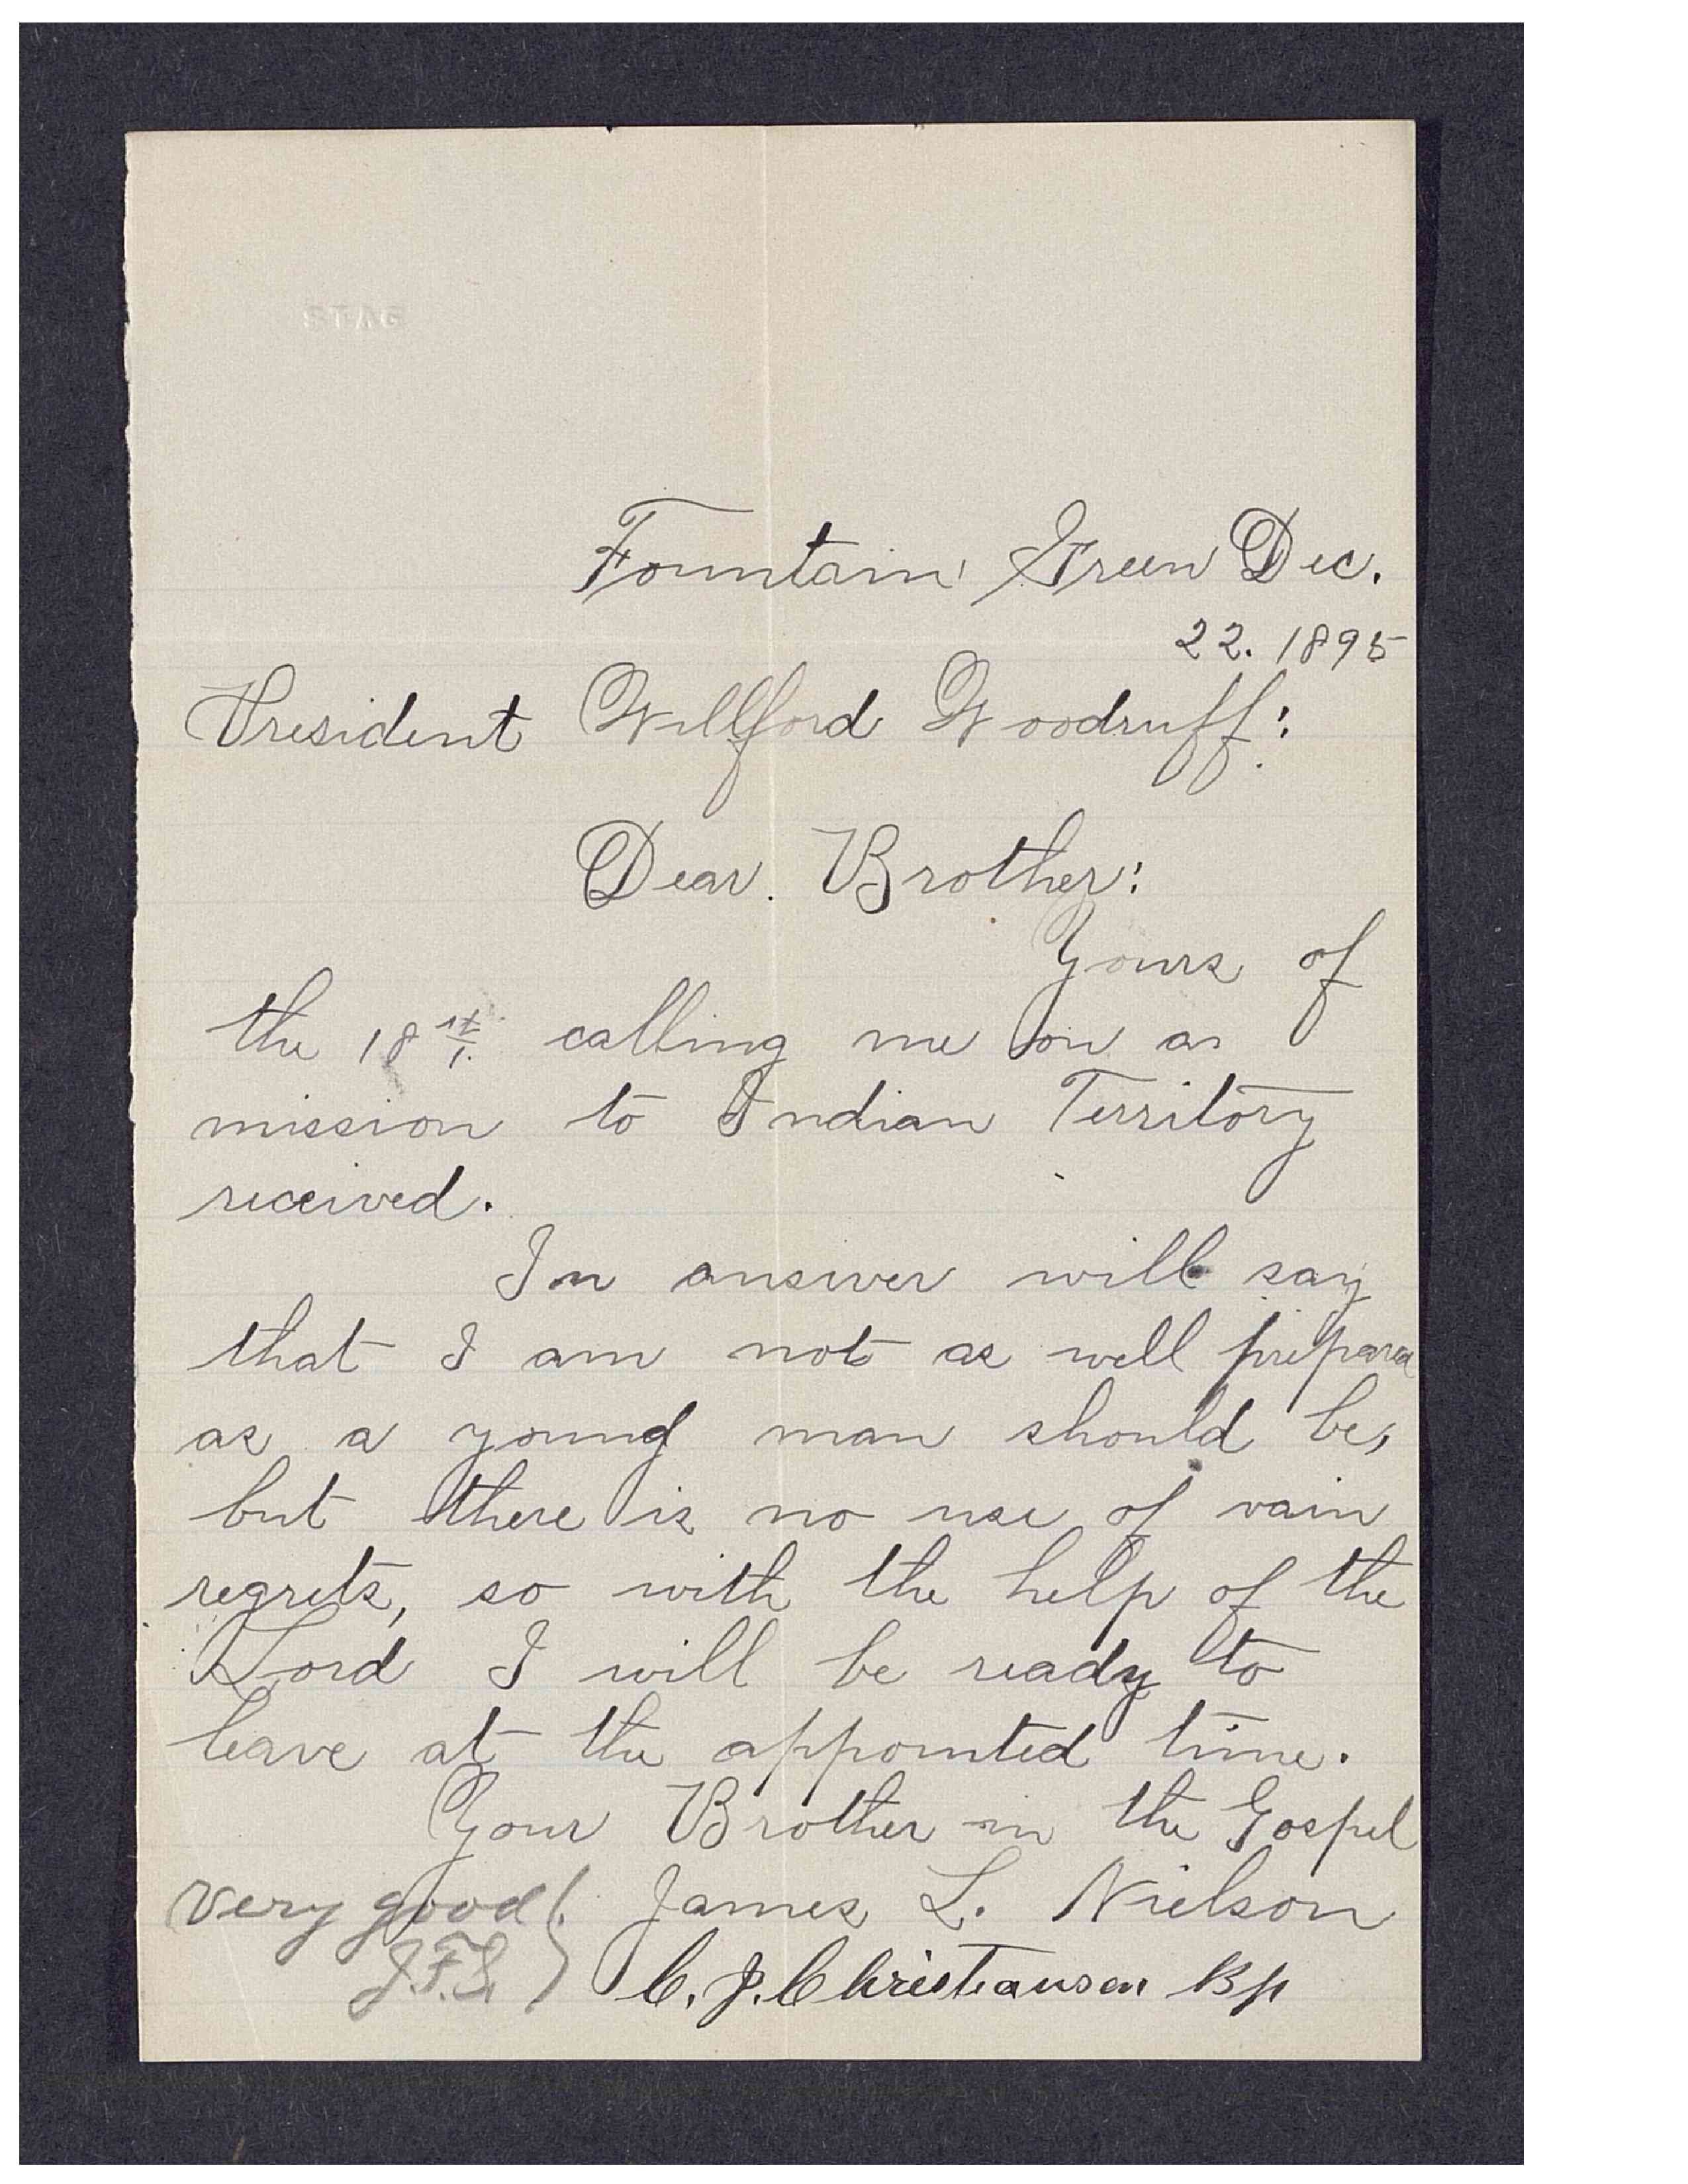 STAG
Fountain Green Dec.
22. 1895
President Willford Woodruff:
Dear. Brother:
Yours of
the 18th calling me on a
mission to Indian Territory
received.
In answer will say
that I am not as well prepared
as a young man should be,
but there is no use of vain
regrets, so with the help of the
Lord I will be ready to
leave at the appointed time.
Your Brother in the Gospel
James L. Nielson
C. J. Christiansen Bp
Very good
J.F.S.